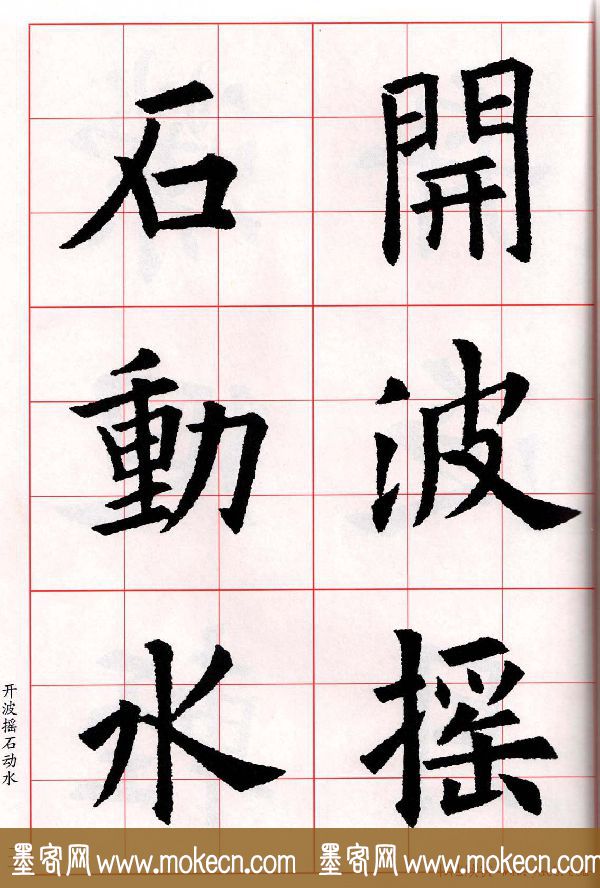 開波摇
石動水
开波摇石动水
墨客网 www.mokecn.com 墨客网 www.mokecn.com